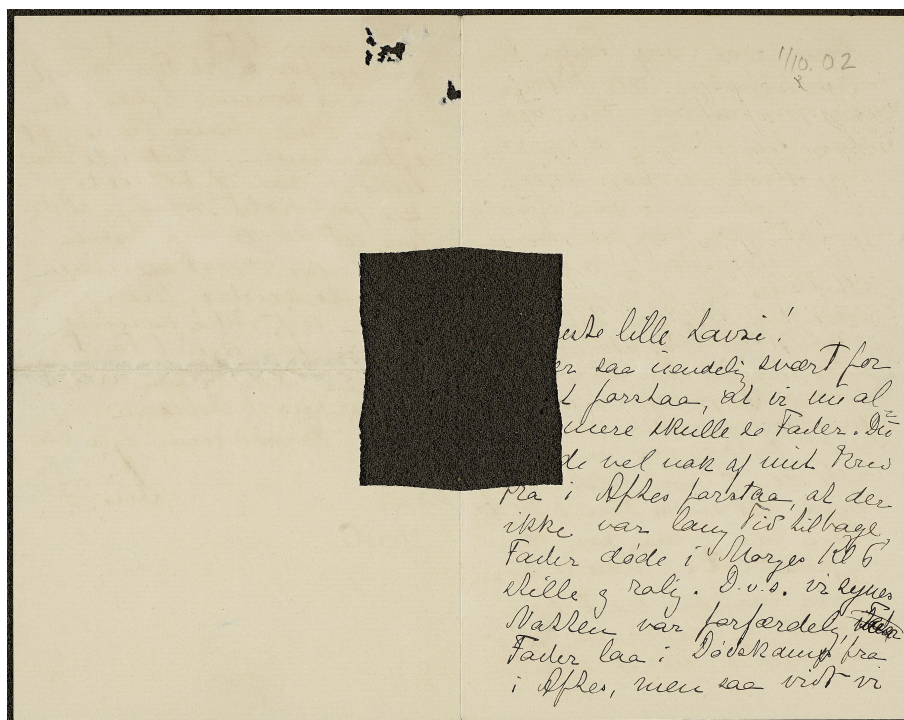 1/10. 02
este lille Lavsi!
er saa uendelig svært for
t forstaa, at vi nu al
mere skulle se Fader. Du
de vel nok af mit Brev
fra i Aftes forstaa, at der
ikke var lang Tid tilbage,
Fader døde i Morges Kl 6
stille og rolig. D.v.s. vi synes
Natten var forfærdelig,
Fader laa i Dødskamp fra
i Aftes, men saa vidt vi